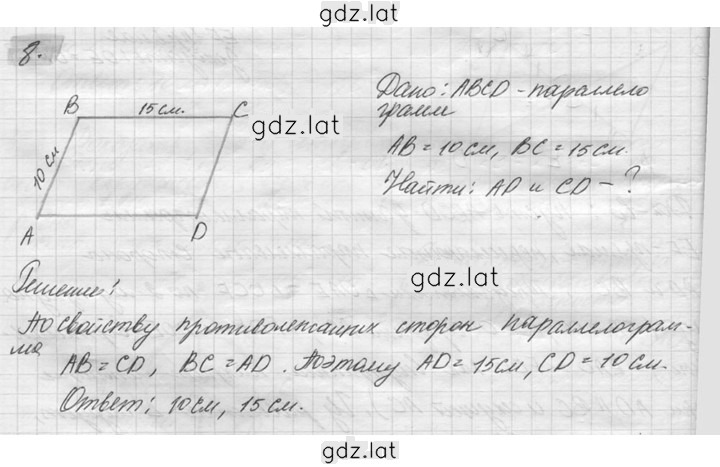 gdz.lat
8.
B 15 см. C
gdz.lat
10 см
A D
Дано: ABCD - параллело
грамм
AB = 10 см, BC = 15 см.
Найти: AD и CD - ?
gdz.lat
Решение:
По свойству противолежащих сторон параллелограм-
ма
AB = CD, BC = AD. Поэтому AD = 15 см, CD = 10 см.
Ответ: 10 см, 15 см.
gdz.lat